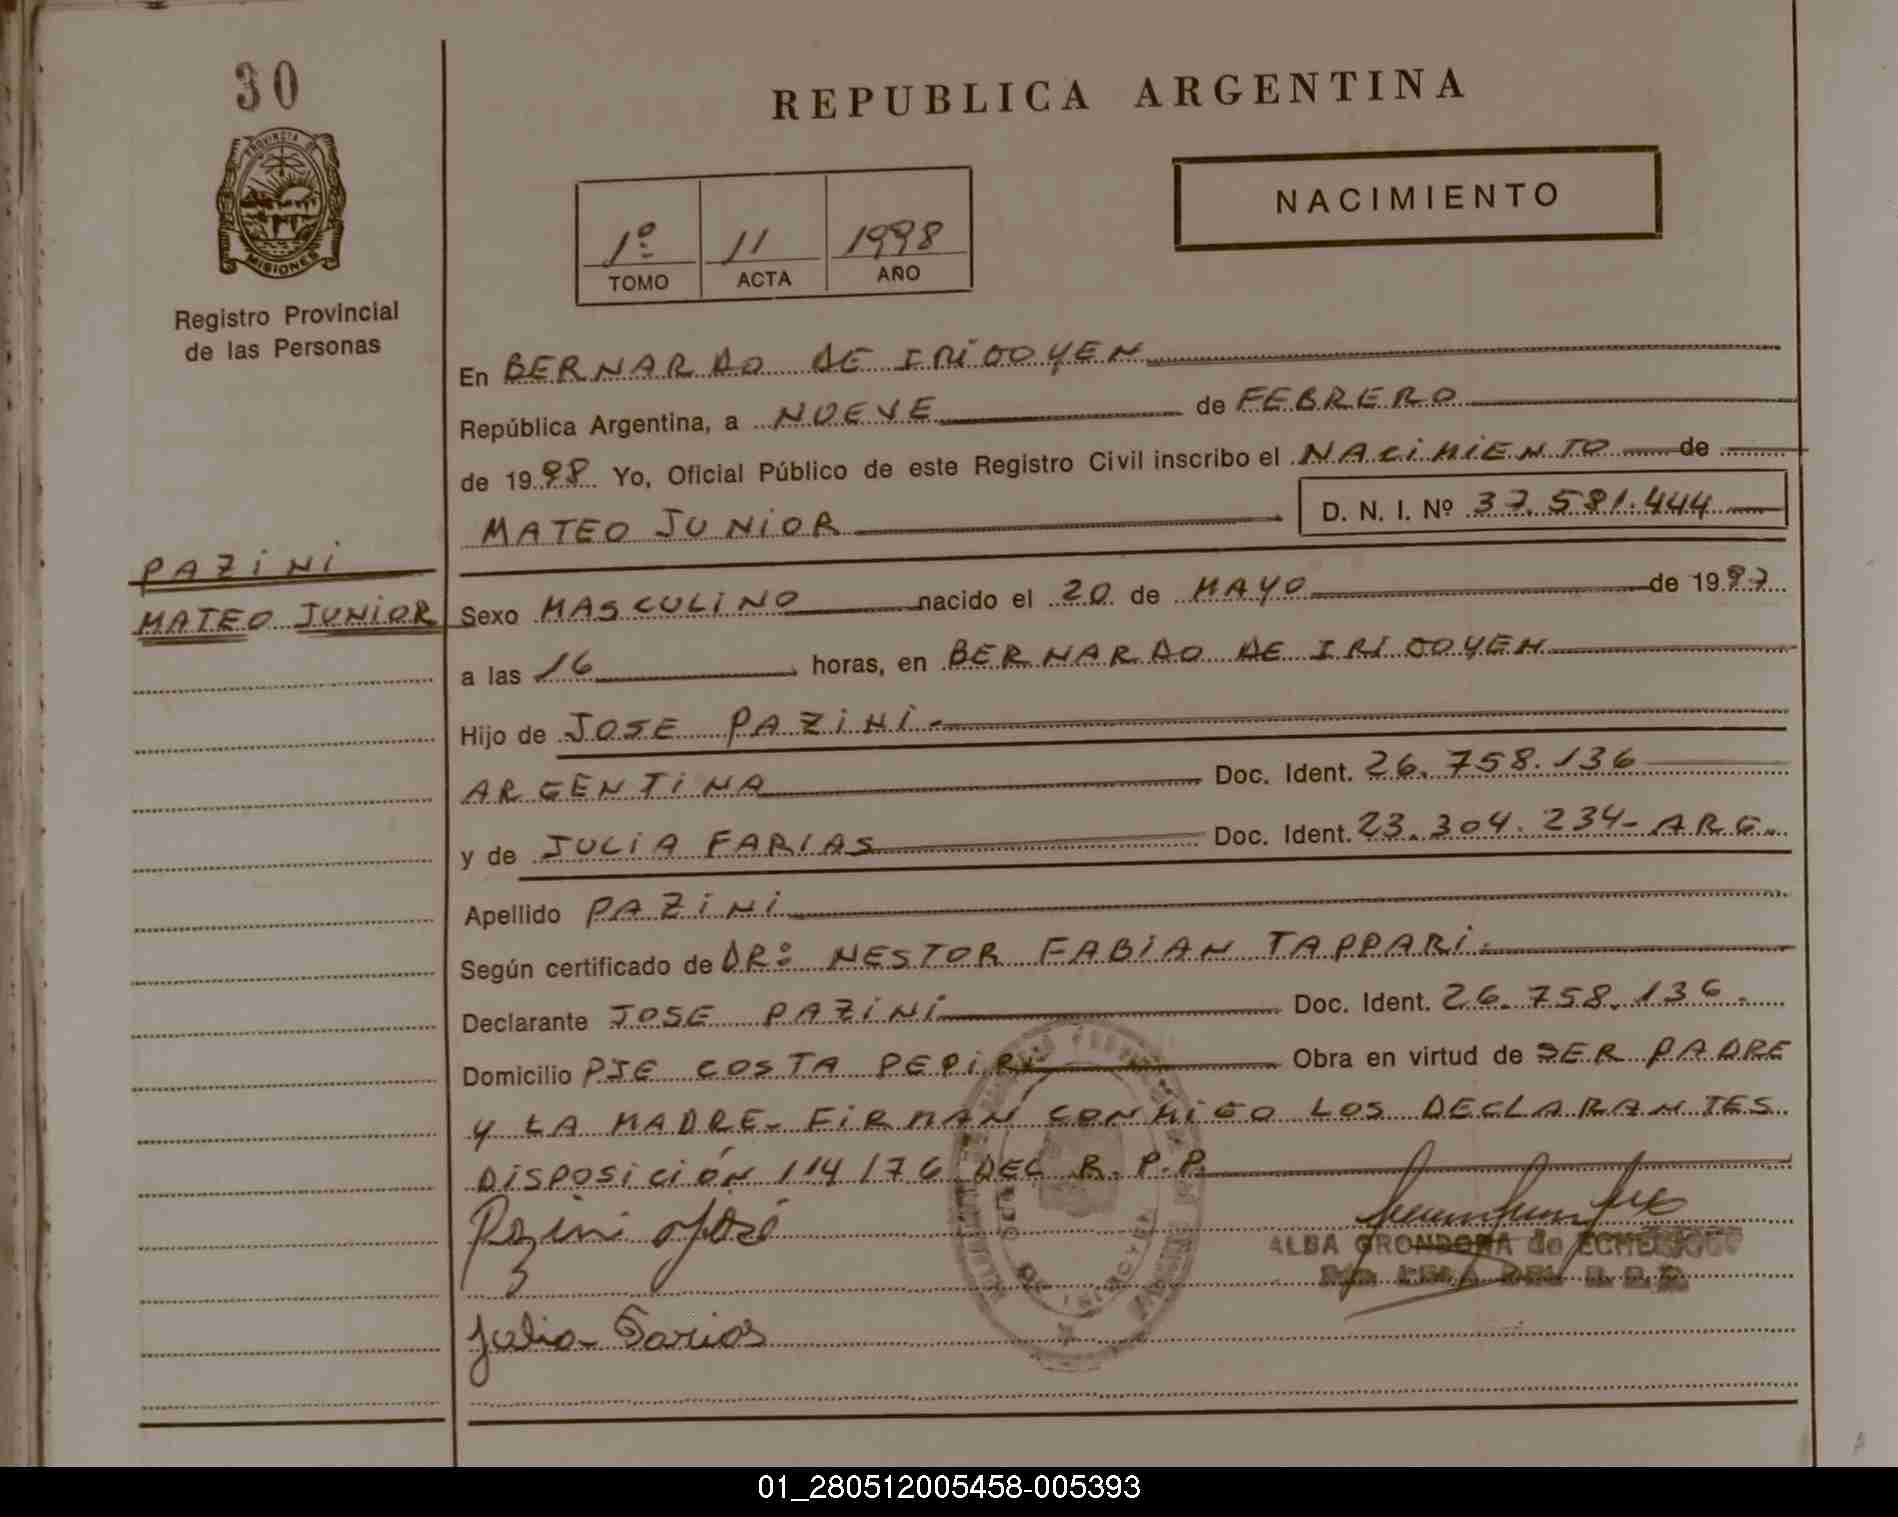 30
PROVINCIA DE
MISIONES
Registro Provincial
de las Personas
REPUBLICA ARGENTINA
NACIMIENTO
1º 11 1998
TOMO ACTA AÑO
En BERNARDO DE IRIGOYEN
República Argentina, a NUEVE de FEBRERO
de 1998 Yo, Oficial Público de este Registro Civil inscribo el NACIMIENTO de
MATEO JUNIOR D. N. I. Nº 37.581.444
PAZINI
MATEO JUNIOR
Sexo MASCULINO nacido el 20 de MAYO de 1997
a las 16 horas, en BERNARDO DE IRIGOYEN
Hijo de JOSE PAZINI.
ARGENTINA Doc. Ident. 26.758.136
y de JULIA FARIAS Doc. Ident. 23.304.234- ARG.
Apellido PAZINI
Según certificado de DR: NESTOR FABIAN TAPPARI.
Declarante JOSE PAZINI Doc. Ident. 26.758.136.
Domicilio PJE COSTA PEPIRY Obra en virtud de SER PADRE
Y LA MADRE. FIRMAN CONMIGO LOS DECLARANTES
DISPOSICIÓN 114/76 DEL R.P.P.
Pazini José
ALBA GRONDONA de
Julia Farias
01_280512005458-005393